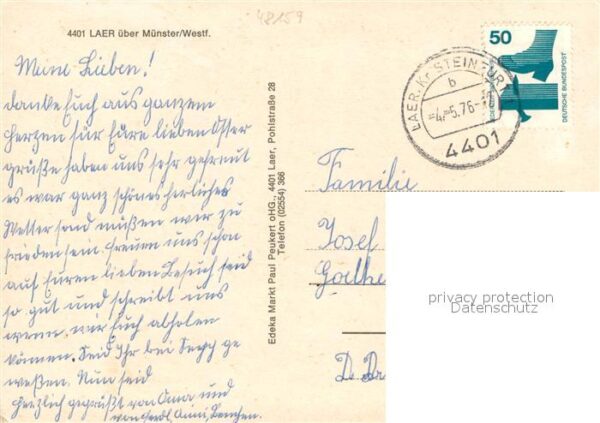 48159
4401 LAER über Münster/Westf.
Meine Lieben!
danke Euch aus ganzem
Herzen für Eure lieben Oster
grüße haben uns sehr gefreut
es war ganz schönes herliches
Wetter sond müßen wir zu
frieden sein freuen uns schon
auf Euren lieben Besuch seid
so gut und schreibt uns
wenn wir Euch abholen
können. Seid Ihr bei Sepp ge
weßen. Nun seid
herzlich gegrüßt von Oma und
von Ferdl Anni,
Edeka Markt Paul Peukert oHG., 4401 Laer, Pohlstraße 28
Telefon (02554) 366
LAER, Kr. STEINFURT
b
-4.-5.76-
4401
50
DEUTSCHE BUNDESPOST
Familie
Josef
Goethe
privacy protection
Datenschutz